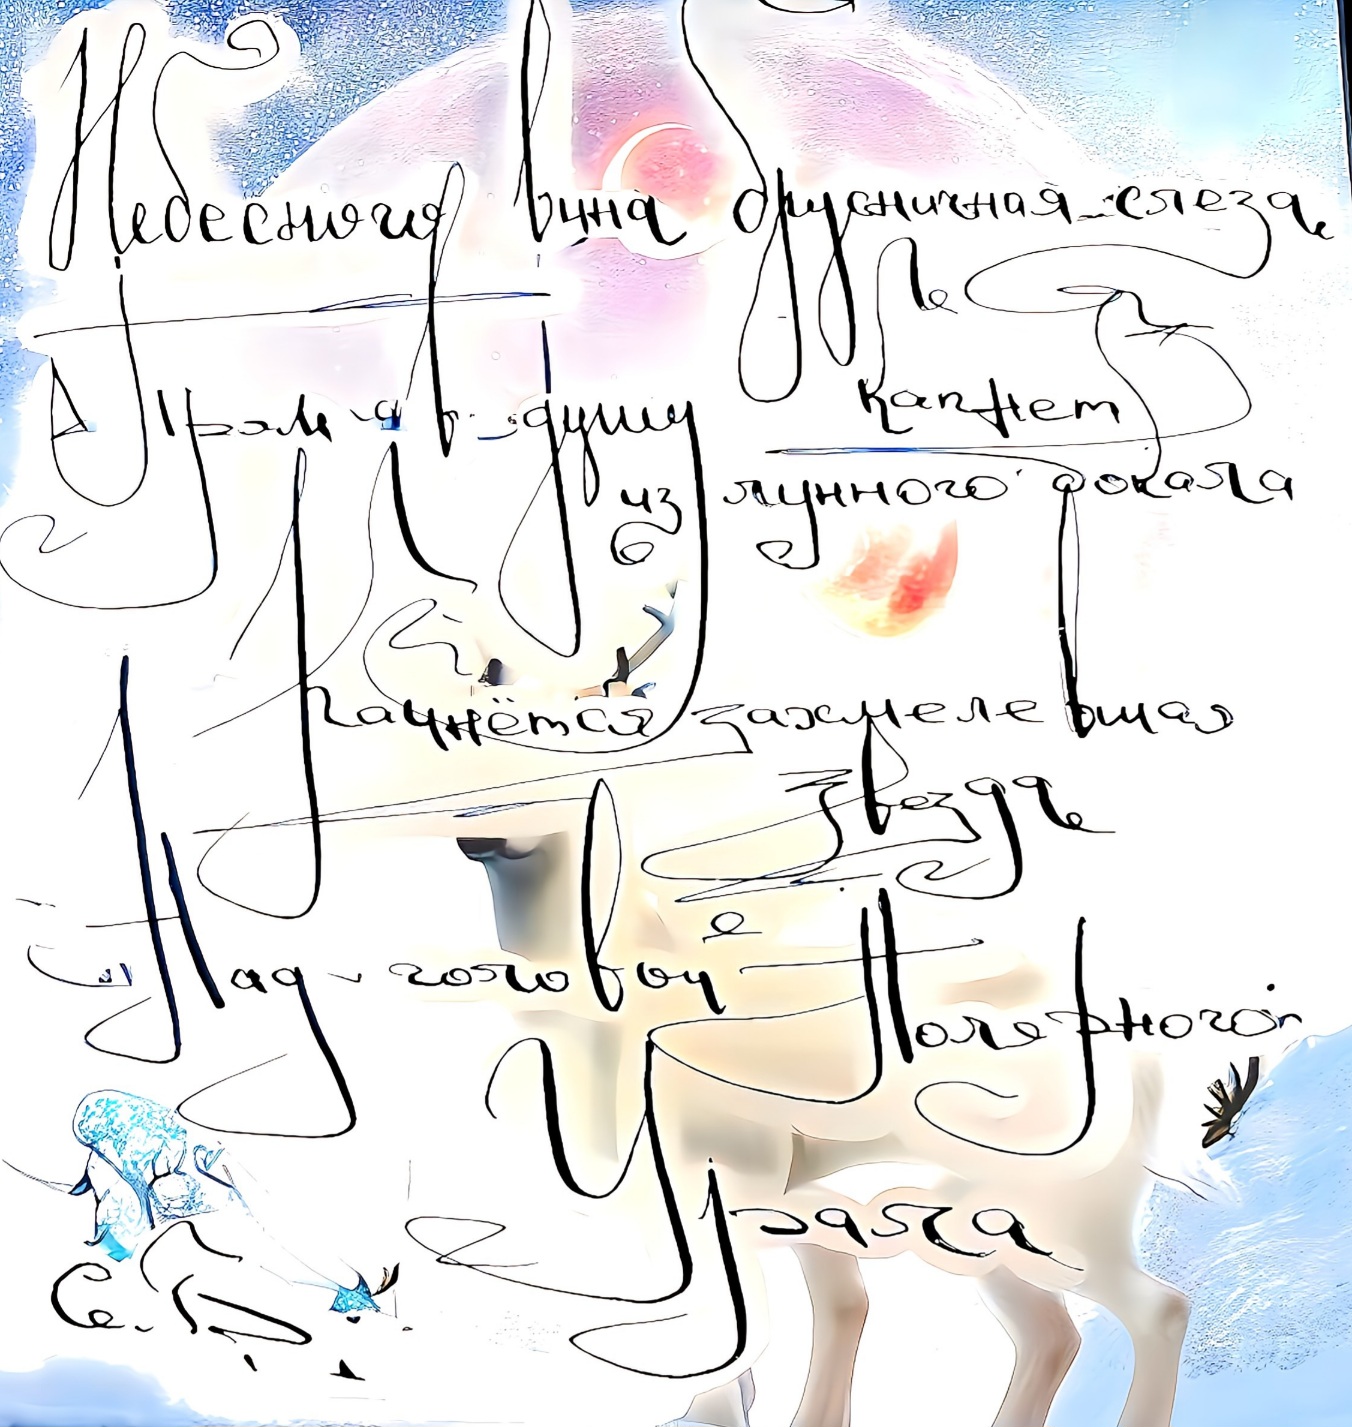 Небесного вина брусничная слеза
капнет
Прям в душу
из лунного бокала
Качнётся захмелевшая
звезда
Над головой
Полярного
Урала